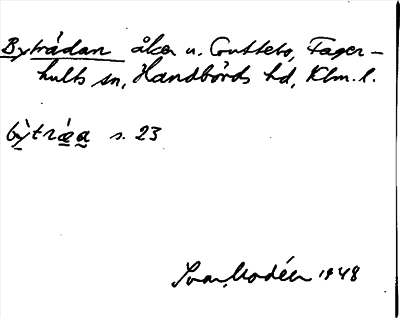 Byträdan åker u. Guttebo, Fager-
hults sn, Handbörds hd, Klm. l.
bỳtrǽa s. 23
Ivar Modéer 1948